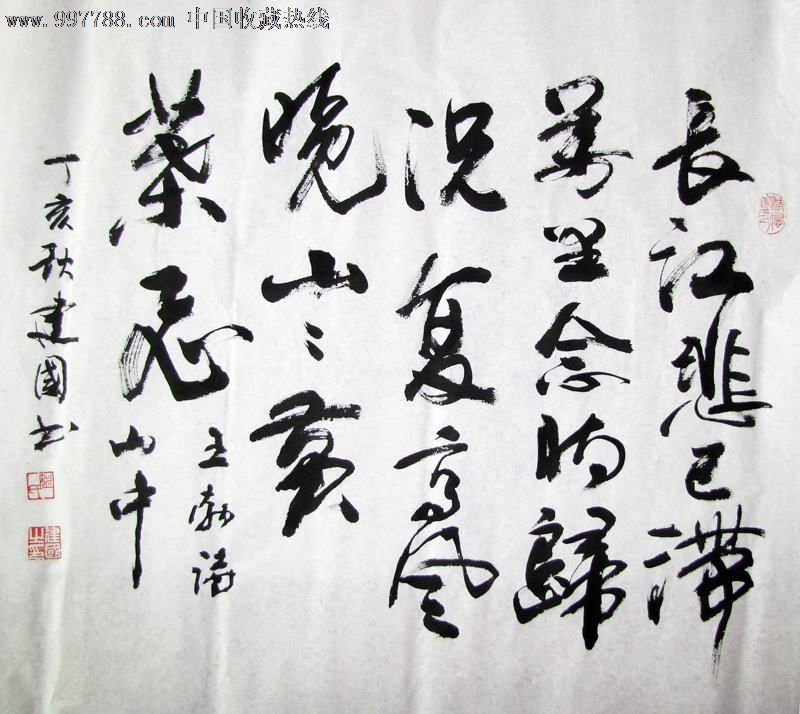 www.997788.com 中国收藏热线
長江悲已滯
萬里念将歸
况复高風
晚山〻黄
葉飛
王勃詩
山中
丁亥秋建國书